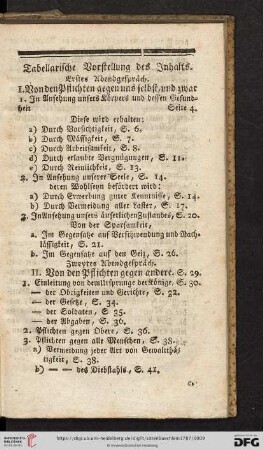 Tabellarische Vorstellung des Inhalts.
Erstes Abendgespräch.
I. Von den Pflichten gegen uns selbst, und zwar
1. In Ansehung unsers Körpers und dessen Gesund-
heit Seite 4.
Diese wird erhalten:
a) Durch Vorsichtigkeit, S. 6.
b) Durch Mässigkeit, S. 7.
c) Durch Arbeitsamkeit, S. 8.
d) Durch erlaubte Vergnügungen, S. 11.
e) Durch Reinlichkeit, S. 13.
2. In Ansehung unserer Seele, S. 14.
deren Wohlseyn befördert wird:
a) Durch Erwerbung guter Kenntnisse, S. 14.
b) Durch Vermeidung aller Laster, S. 17.
3. In Ansehung unsers äusserlichen Zustandes, S. 20.
Von der Sparsamkeit,
a. Im Gegensatze auf Verschwendung und Nach-
lässigkeit, S. 21.
b. Im Gegensatze auf den Geiz, S. 26.
Zweytes Abendgespräch.
II. Von den Pflichten gegen andere. S. 29.
1. Einleitung von dem Ursprunge der Könige. S. 30.
— der Obrigkeiten und Gerichte, S. 32.
— der Gesetze, S. 34.
— der Soldaten, S 35.
— der Abgaben, S. 36.
2. Pflichten gegen Obere, S. 36.
3. Pflichten gegen alle Menschen, S. 38.
a) Vermeidung jeder Art von Gewaltthä-
tigkeit, S. 38.
b) — — des Diebstahls, S. 41.
UNIVERSITÄTS-BIBLIOTHEK HEIDELBERG
DFG